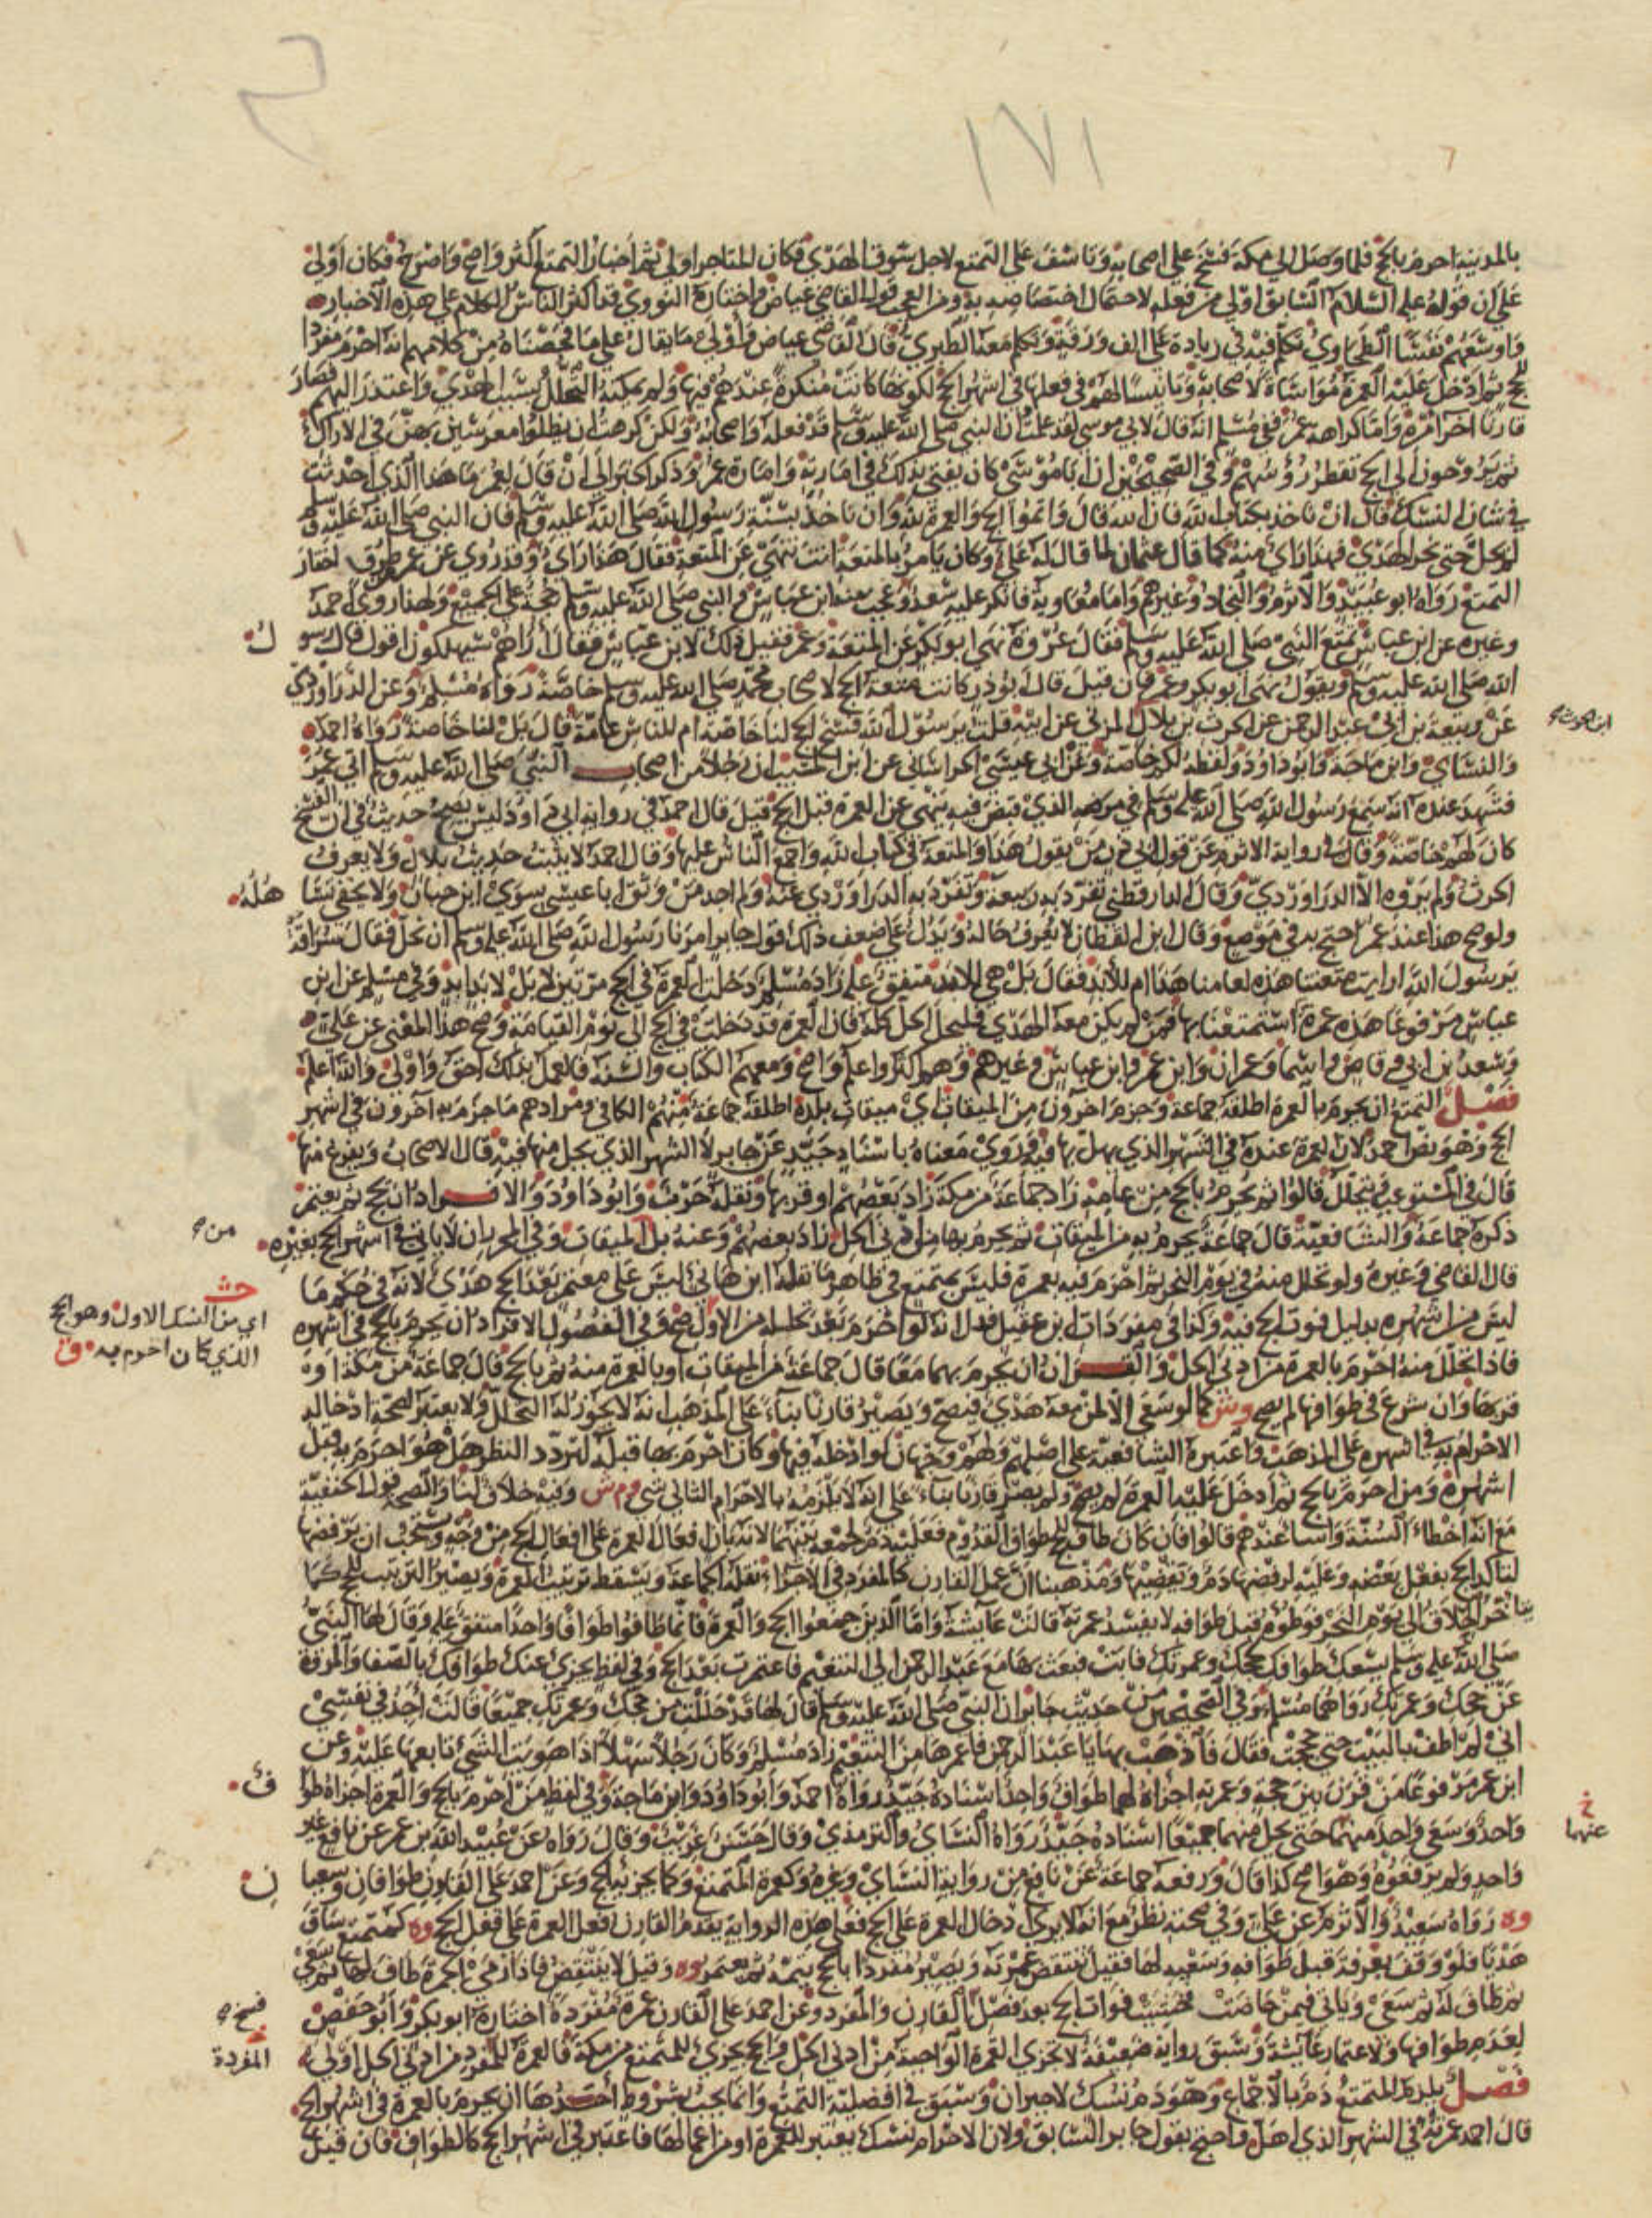 ١٧١
بالمدينة احرم بالحج فلما وصل الى مكة فسخ على اصحابه وتاسف على التمتع لاجل سوق الهدي فكان المتاخر اولى ثم اخبار التمتع اكثر واصح واصرح فكان اولى
على ان قوله عليه السلام السابق اولى من فعله لاحتمال اختصاصه به ومن العجب قول القاضي عياض واختاره النووي قد اكثر الناس الكلام على هذه الاخبار
واوسعهم نفسا الطحاوي تكلم فيه في زيادة على الف ورقة وتكلم معه الطبري قال القاضي عياض واولى ما يقال على ما فحصناه من كلامهم انه احرم مفردا
للحج ثم ادخل عليه العمرة مواساة لاصحابه وتانيسا لهم في فعلها في اشهر الحج لكونها كانت منكرة عندهم فيها ولم يمكنه التحلل بسبب الهدي واعتذر اليهم فصار
قارنا اخر امره واما كراهة عمر ففي مسلم انه قال لابي موسى لقد علمت ان النبي صلى الله عليه وسلم قد فعله واصحابه ولكن كرهت ان يظلوا معرسين بهن في الاراك
ثم يروحون الى الحج تقطر رؤسهم وفي الصحيحين ان ابا موسى كان يفتي بذلك في امارته وامارة عمر وذكر الخبر الى ان قال لعمر ما هذا الذي احدثت
في شان النسك قال ان ناخذ بكتاب الله فان الله قال واتموا الحج والعمرة لله وان ناخذ بسنة رسول الله صلى الله عليه وسلم فان النبي صلى الله عليه وسلم
لم يحل حتى نحر الهدي فهذا راي منه كما قال عثمان لما قال له علي وكان يامر بالمتعة انت تنهى عن المتعة فقال هذا راي وقد روي عن عمر طرق اختار
التمتع رواه ابو عبيد والاثرم والنجاد وغيرهم واما معاوية فانكر عليه سعد وعجب منه ابن عباس والنبي صلى الله عليه وسلم حجة على الجميع ولهذا روى احمد
وغيره عن ابن عباس تمتع النبي صلى الله عليه وسلم فقال عروة نهى ابو بكر وعمر عن المتعة فقيل ذلك لابن عباس فقال اراهم سيهلكون اقول قال رسو ل
الله صلى الله عليه وسلم ويقول نهى ابو بكر وعمر فان قيل قال ابو ذر كانت متعة الحج لاصحاب محمد صلى الله عليه وسلم خاصة رواه مسلم وعن الدراوردي
عن ربيعة بن ابي عبد الرحمن عن الحرث بن بلال المزني عن ابيه قلت يرسول الله فسخ الحج لنا خاصة ام للناس عامة قال بل لنا خاصة رواه احمد
ابن الحرث
والنساي وابن ماجة وابو داود ولفظه لكم خاصة وعن ابي عيسى الخراساني عن ابن المسيب ان رجلا من اصحاب النبي صلى الله عليه وسلم اتى عمر
فشهد عنده انه سمع رسول الله صلى الله عليه وسلم في مرضه الذي قبض فيه ينهى عن العمرة قبل الحج قيل قال احمد في رواية ابي داود ليس يصح حديث في ان الفسخ
كان لهم خاصة وقال في رواية الاثرم عن قول ابي ذر من يقول هذا والمتعة في كتاب الله واجمع الناس عليها وقال احمد لا يثبت حديث بلال ولا يعرف
الحرث ولم يروه الا الدراوردي وقال الدارقطني تفرد به ربيعة وتفرد به الدراوردي عنه ولم اجد من وثق ابا عيسى سوى ابن حبان ولا يخفى تسا هله
ولو صح هذا عند عمر احتج به في موضع وقال ابن القطان لا يعرف حاله ويدل على ضعف ذلك قول جابر امرنا رسول الله صلى الله عليه وسلم ان نحل فقال سراقة
يرسول الله ارايت متعتنا هذه لعامنا هذا ام للابد فقال بل هي للابد متفق عليه زاد مسلم دخلت العمرة في الحج مرتين لا بل لابد ابد وفي مسلم عن ابن
عباس مرفوعا هذه عمرة استمتعنا بها فمن لم يكن معه الهدي فليحل الحل كله فان العمرة قد دخلت في الحج الى يوم القيامة وصح هذا المعنى عن علي
وسعد بن ابي وقاص واسما وعمران وابن عمر وابن عباس وغيرهم وهم اكثر واعلم واصح ومعهم الكتاب والسنة فالعمل بذلك احق واولى والله اعلم
فصل التمتع ان يحرم بالعمرة اطلقه جماعة وجزم اخرون من الميقات اي ميقات بلده اطلقه جماعة منهم الكافي ومرادهم ما جزم به اخرون في اشهر
الحج وهو نص احمد لان العمرة عنده في الشهر الذي يهل بها فيه وروي معناه باسناد جيد عن جابر لا الشهر الذي يحل منها فيه قال الاصحاب ويفرغ منها
قال في المستوعب ويتحلل قالوا ثم يحرم بالحج من عامه زاد جماعة من مكة زاد بعضهم او قربها ونقله حرب وابو داود والافراد ان يحج ثم يعتمر
ذكره جماعة والشافعية قال جماعة يحرم به من الميقات ثم يحرم بها من ادنى الحل زاد بعضهم وعنه بل الميقات وفي المحرر ان لا ياتي في اشهر الحج بغيره
من
قال القاضي وغيره ولو تحلل منه في يوم النحر ثم احرم فيه بعمرة فليس بمتمتع في ظاهر ما نقله ابن هاني ليس على معتمر بعد الحج هدي لانه في حكم ما
حش
اي من النسك الاول وهو الحج
الذي كان احرم به ق
ليس من اشهره بدليل فوت الحج فيه وكذا في مفردات ابن عقيل فدل انه لو احرم بعد تحلله من الاول صح وفي الفصول الافراد ان يحرم بالحج في اشهره
فاذا تحلل منه احرم بالعمرة من ادنى الحل والقران ان يحرم بهما معا قال جماعة من الميقات او بالعمرة منه ثم بالحج قال جماعة من مكة او
قربها وان شرع في طوافها لم يصح وش كما لو سعى الا لمن معه هدي فيصح ويصير قارنا بناء على المذهب انه لا يجوز له التحلل ولا يعتبر لصحة ادخاله
الاحرام به في اشهره على المذهب واعتبره الشافعية على اصلهم ولهم وجهان لو ادخله فيها وكان احرم بها قبله لتردد النظر هل هو احرم به قبل
اشهره ومن احرم بالحج ثم ادخل عليه العمرة لم يصح ولم يصر قارنا بناء على انه لا يلزمه بالاحرام الثاني شي وم ش وفيه خلاف لنا والصحة قول الحنفية
مع انه اخطا السنة واسا عندهم قالوا فان كان طاف للحج طواف القدوم فعليه دم لجمعه بينهما لانه بان افعال العمرة على افعال الحج من وجه ويستحب ان يرفضها
لتاكد الحج بفعل بعضه وعليه لرفضها دم ويقضيها ومذهبنا ان عمل القارن كالمفرد في الاجزاء نقله الجماعة ويسقط ترتيب العمرة ويصير الترتيب للحج كما
يتاخر الحلاق الى يوم النحر فوطؤه قبل طوافه لا يفسد عمرته قالت عايشة واما الذين جمعوا الحج والعمرة فانما طافوا طوافا واحدا متفق عليه وقال لها النبي
صلى الله عليه وسلم يسعك طوافك لحجك وعمرتك فابت فبعث بها مع عبد الرحمن الى التنعيم فاعتمرت بعد الحج وفي لفظ يجزي عنك طوافك بالصفا والمروة
عن حجك وعمرتك رواهما مسلم وفي الصحيحين من حديث جابر ان النبي صلى الله عليه وسلم قال لها قد حللت من حجك وعمرتك جميعا قالت اجد في نفسي
اني لم اطف بالبيت حتى حججت فقال فاذهب بها يا عبد الرحمن فاعمرها من التنعيم زاد مسلم وكان رجلا سهلا اذا هويت الشيء تابعها عليه وعن
ابن عمر مرفوعا من قرن بين حجه وعمرته اجزاه لهما طواف واحد اسناده جيد رواه احمد وابو داود وابن ماجة وفي لفظ من احرم بالحج والعمرة اجزاه طوا ف
خ
عنهما
واحد وسعي واحد منهما حتى يحل منهما جميعا اسناده جيد رواه النساي والترمذي وقال حسن غريب وقال رواه عن عبيد الله بن عمر عن نافع غير
واحد ولم يرفعوه وهو اصح كذا قال ورفعه جماعة عن نافع من رواية النساي وغيره وكعمرة المتمتع وكما يجزيه الحج وعن احمد على القارن طوافان وسعيا ن
وه رواه سعيد والاثرم عن علي وفي صحته نظر مع انه لا يرى ادخال العمرة على الحج فعلى هذه الرواية يقدم القارن فعل العمرة على فعل الحج وه كمتمتع ساق
هديا فلو وقف بعرفة قبل طوافه وسعيه لها فقيل تنتقض عمرته ويصير مفردا بالحج يتمه ثم يعتمر وه وقيل لا ينتقض فاذا رمى الجمرة طاف لها ثم سعى
ثم طاف له ثم سعى وياتي فيمن حاضت فخشيت فوات الحج بعد فصل القارن والمفرد وعن احمد على القارن عمرة مفردة اختاره ابو بكر وابو حفص
فسخ
المفردة
لعدم طوافها ولاعتمار عايشة وسبق رواية ضعيفة لا تجزي العمرة الواجبة من ادنى الحل والحج يجزي للمتمتع من مكة فالعمرة للمفرد من ادنى الحل اولى
فصل يلزم المتمتع دم بالاجماع وهو دم نسك لا جبران وسبق في افضلية التمتع وانما يجب بشروط احدها ان يحرم بالعمرة في اشهر الحج
قال احمد عمرته في الشهر الذي اهل واحتج بقول جابر السابق ولان الاحرام نسك يعتبر للعمرة او من اعمالها فاعتبر في اشهر الحج كالطواف فان قيل